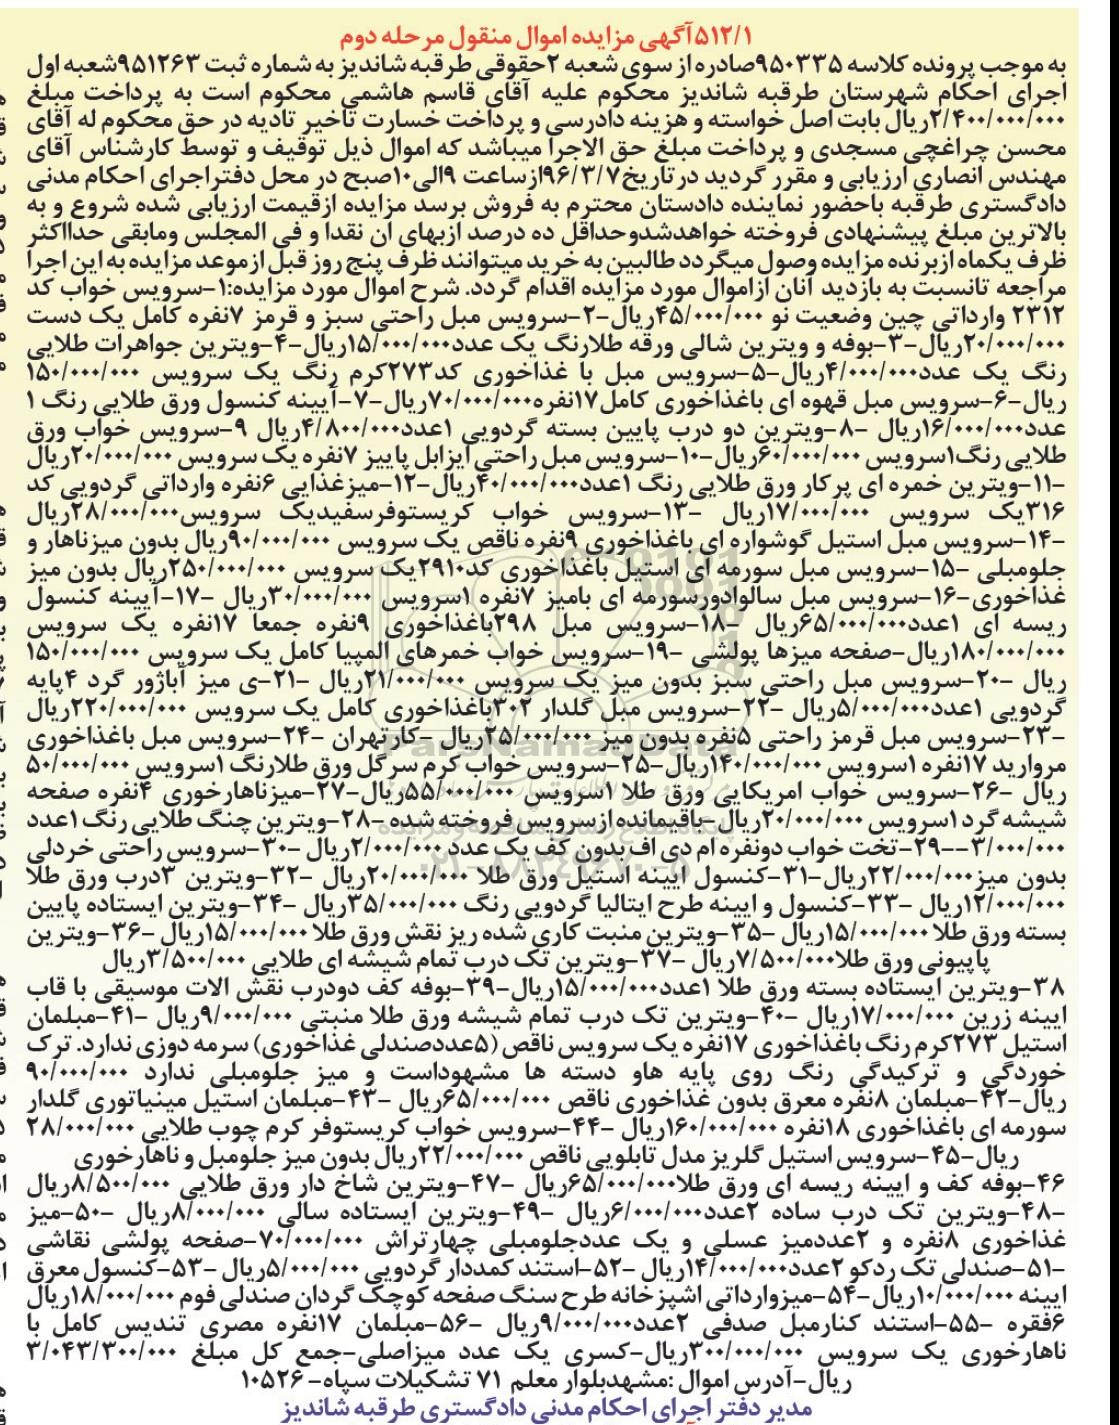 ۵۱۲/۱آگهی مزایده اموال منقول مرحله دوم
به موجب پرونده کلاسه ۹۵۰۳۳۵صادره از سوی شعبه ۲حقوقی طرقبه شاندیز به شماره ثبت ۹۵۱۲۶۳شعبه اول
اجرای احکام شهرستان طرقبه شاندیز محکوم علیه آقای قاسم هاشمی محکوم است به پرداخت مبلغ
۲/۴۰۰/۰۰۰/۰۰۰ریال بابت اصل خواسته و هزینه دادرسی و پرداخت خسارت تاخیر تادیه در حق محکوم له آقای
محسن چراغچی مسجدی و پرداخت مبلغ حق الاجرا میباشد که اموال ذیل توقیف و توسط کارشناس آقای
مهندس انصاری ارزیابی و مقرر گردید در تاریخ۹۶/۳/۷ازساعت ۹الی۱۰صبح در محل دفتراجرای احکام مدنی
دادگستری طرقبه باحضور نماینده دادستان محترم به فروش برسد مزایده ازقیمت ارزیابی شده شروع و به
بالاترین مبلغ پیشنهادی فروخته خواهدشدوحداقل ده درصد ازبهای ان نقدا و فی المجلس ومابقی حدااکثر
ظرف یکماه ازبرنده مزایده وصول میگردد طالبین به خرید میتوانند ظرف پنج روز قبل ازموعد مزایده به این اجرا
مراجعه تانسبت به بازدید آنان ازاموال مورد مزایده اقدام گردد. شرح اموال مورد مزایده:۱-سرویس خواب کد
۲۳۱۲ وارداتی چین وضعیت نو ۴۵/۰۰۰/۰۰۰ریال-۲-سرویس مبل راحتی سبز و قرمز ۷نفره کامل یک دست
۲۰/۰۰۰/۰۰۰ریال-۳-بوفه و ویترین شالی ورقه طلارنگ یک عدد۱۵/۰۰۰/۰۰۰ریال-۴-ویترین جواهرات طلایی
رنگ یک عدد۴/۰۰۰/۰۰۰ریال-۵-سرویس مبل با غذاخوری کد۲۷۳کرم رنگ یک سرویس ۱۵۰/۰۰۰/۰۰۰
ریال-۶-سرویس مبل قهوه ای باغذاخوری کامل۱۷نفره۷۰/۰۰۰/۰۰۰ریال-۷-آیینه کنسول ورق طلایی رنگ ۱
عدد۱۶/۰۰۰/۰۰۰ریال -۸-ویترین دو درب پایین بسته گردویی ۱عدد۴/۸۰۰/۰۰۰ریال ۹-سرویس خواب ورق
طلایی رنگ۱سرویس ۶۰/۰۰۰/۰۰۰ریال-۱۰-سرویس مبل راحتی ایزابل پاییز ۷نفره یک سرویس ۲۰/۰۰۰/۰۰۰ریال
-۱۱-ویترین خمره ای پر کار ورق طلایی رنگ ۱عدد۴۰/۰۰۰/۰۰۰ریال-۱۲-میزغذایی ۶نفره وارداتی گردویی کد
۳۱۶یک سرویس ۱۷/۰۰۰/۰۰۰ریال -۱۳-سرویس خواب کریستوفرسفیدیک سرویس۲۸/۰۰۰/۰۰۰ریال
-۱۴-سرویس مبل استیل گوشواره ای باغذاخوری ۹نفره ناقص یک سرویس ۹۰/۰۰۰/۰۰۰ریال بدون میزناهار و
جلومبلی -۱۵-سرویس مبل سورمه ای استیل باغذاخوری کد۲۹۱۰یک سرویس ۲۵۰/۰۰۰/۰۰۰ریال بدون میز
غذاخوری-۱۶-سرویس مبل سالوادورسورمه ای بامیز ۷نفره ۱سرویس ۳۰/۰۰۰/۰۰۰ریال -۱۷-آیینه کنسول
ریسه ای ۱عدد۶۵/۰۰۰/۰۰۰ریال -۱۸-سرویس مبل ۲۹۸باغذاخوری ۹نفره جمعا ۱۷نفره یک سرویس
۱۸۰/۰۰۰/۰۰۰ریال-صفحه میزها پولشی -۱۹-سرویس خواب خمرهای المپیا کامل یک سرویس ۱۵۰/۰۰۰/۰۰۰
ریال -۲۰-سرویس مبل راحتی سبز بدون میز یک سرویس ۲۱/۰۰۰/۰۰۰ریال -۲۱-ی میز آباژور گرد ۴پایه
گردویی ۱عدد۵/۰۰۰/۰۰۰ریال -۲۲-سرویس مبل گلدار ۳۰۲باغذاخوری کامل یک سرویس ۲۲۰/۰۰۰/۰۰۰ریال
-۲۳-سرویس مبل قرمز راحتی ۵نفره بدون میز ۲۵/۰۰۰/۰۰۰ریال -کارتهران -۲۴-سرویس مبل باغذاخوری
مروارید ۱۷نفره ۱سرویس ۱۴۰/۰۰۰/۰۰۰ریال-۲۵-سرویس خواب کرم سرگل ورق طلارنگ ۱سرویس ۵۰/۰۰۰/۰۰۰
ریال -۲۶-سرویس خواب امریکایی ورق طلا ۱سرویس ۵۵/۰۰۰/۰۰۰ریال-۲۷-میزناهارخوری ۴نفره صفحه
شیشه گرد ۱سرویس ۲۰/۰۰۰/۰۰۰ریال-باقیمانده ازسرویس فروخته شده -۲۸-ویترین چنگ طلایی رنگ ۱عدد
۳/۰۰۰/۰۰۰--۲۹-تخت خواب دونفره ام دی اف بدون کف یک عدد ۲/۰۰۰/۰۰۰ریال -۳۰-سرویس راحتی خردلی
بدون میز۲۲/۰۰۰/۰۰۰ریال-۳۱-کنسول آیینه استیل ورق طلا ۲۰/۰۰۰/۰۰۰ریال -۳۲-ویترین ۳درب ورق طلا
۱۲/۰۰۰/۰۰۰ریال -۳۳-کنسول و ایینه طرح ایتالیا گردویی رنگ ۳۵/۰۰۰/۰۰۰ریال -۳۴-ویترین ایستاده پایین
بسته ورق طلا ۱۵/۰۰۰/۰۰۰ریال -۳۵-ویترین منبت کاری شده ریز نقش ورق طلا ۱۵/۰۰۰/۰۰۰ریال -۳۶-ویترین
پاپیونی ورق طلا۷/۵۰۰/۰۰۰ریال -۳۷-ویترین تک درب تمام شیشه ای طلایی ۳/۵۰۰/۰۰۰ریال
۳۸-ویترین ایستاده بسته ورق طلا ۱عدد۱۵/۰۰۰/۰۰۰ریال-۳۹-بوفه کف دودرب نقش الات موسیقی با قاب
ایینه زرین ۱۷/۰۰۰/۰۰۰ریال -۴۰-ویترین تک درب تمام شیشه ورق طلا منبتی ۹/۰۰۰/۰۰۰ریال -۴۱-مبلمان
استیل ۲۷۳کرم رنگ باغذاخوری ۱۷نفره یک سرویس ناقص (۵عددصندلی غذاخوری) سرمه دوزی ندارد. ترک
خوردگی و ترکیدگی رنگ روی پایه هاو دسته ها مشهوداست و میز جلومبلی ندارد ۹۰/۰۰۰/۰۰۰
ریال-۴۲-مبلمان ۸نفره معرق بدون غذاخوری ناقص ۶۵/۰۰۰/۰۰۰ریال -۴۳-مبلمان استیل مینیاتوری گلدار
سورمه ای باغذاخوری ۱۸نفره ۱۶۰/۰۰۰/۰۰۰ریال -۴۴-سرویس خواب کریستوفر کرم چوب طلایی ۲۸/۰۰۰/۰۰۰
ریال-۴۵-سرویس استیل گلریز مدل تابلویی ناقص ۲۲/۰۰۰/۰۰۰ریال بدون میز جلومبل و ناهارخوری
۴۶-بوفه کف و ایینه ریسه ای ورق طلا۶۵/۰۰۰/۰۰۰ریال -۴۷-ویترین شاخ دار ورق طلایی ۸/۵۰۰/۰۰۰ریال
-۴۸-ویترین تک درب ساده ۲عدد۶/۰۰۰/۰۰۰ریال -۴۹-ویترین ایستاده سالی ۸/۰۰۰/۰۰۰ریال -۵۰-میز
غذاخوری ۸نفره و ۲عددمیز عسلی و یک عددجلومبلی چهارتراش ۷۰/۰۰۰/۰۰۰-صفحه پولشی نقاشی
-۵۱-صندلی تک ردکو ۲عدد۱۴/۰۰۰/۰۰۰ریال -۵۲-استند کمددار گردویی ۵/۰۰۰/۰۰۰ریال -۵۳-کنسول معرق
ایینه ۱۰/۰۰۰/۰۰۰ریال-۵۴-میزوارداتی اشپزخانه طرح سنگ صفحه کوچک گردان صندلی فوم ۱۸/۰۰۰/۰۰۰ریال
۶فقره -۵۵-استند کنارمبل صدفی ۲عدد۹/۰۰۰/۰۰۰ریال -۵۶-مبلمان ۱۷نفره مصری تندیس کامل با
ناهارخوری یک سرویس ۳۰۰/۰۰۰/۰۰۰ریال-کسری یک عدد میزاصلی-جمع کل مبلغ ۳/۰۴۳/۳۰۰/۰۰۰
ریال-آدرس اموال :مشهدبلوار معلم ۷۱ تشکیلات سپاه-۱۰۵۲۶
مدیر دفتر اجرای احکام مدنی دادگستری طرقبه شاندیز